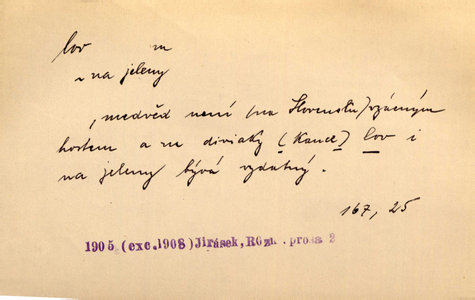 lov m
na jeleny
, medvěd není (na Slovensku) vzácným
hostem a na diviaky (kance) lov i
na jeleny bývá vydatný .
167, 25
1905 (exc. 1908) Jirásek, Rozm. prosa 2